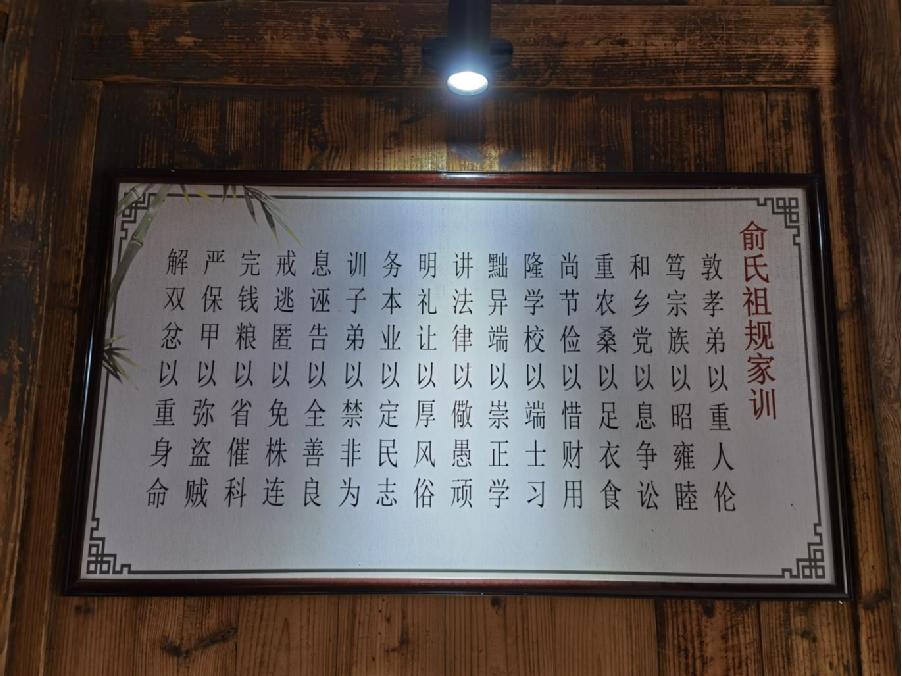 俞氏祖规家训
敦孝弟以重人伦
笃宗族以昭雍睦
和乡党以息争讼
重农桑以足衣食
尚节俭以惜财用
隆学校以端士习
黜异端以崇正学
讲法律以儆愚顽
明礼让以厚风俗
务本业以定民志
训子弟以禁非为
息诬告以全善良
戒逃匿以免株连
完钱粮以省催科
严保甲以弥盗贼
解双忿以重身命